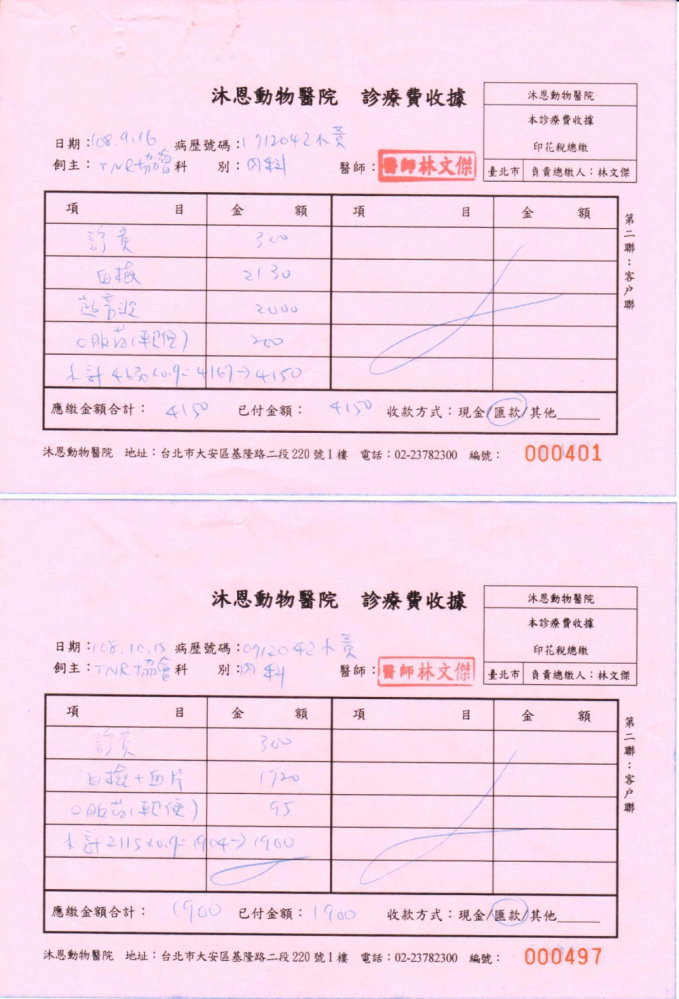 沐恩動物醫院 診療費收據
沐恩動物醫院
本診療費收據
印花稅總繳
臺北市 負責總繳人：林文傑
日期：108.9.16 病歷號碼：1712042 小黃
飼主：TNR協會 科別：內科 醫師：醫師林文傑
項目 金額 項目 金額
診費 300
血檢 2130
2000
口服藥(軟便) 200
小計 4630x0.9=4167→4150
應繳金額合計：4150 已付金額：4150 收款方式：現金/匯款/其他
第二聯：客戶聯
沐恩動物醫院 地址：台北市大安區基隆路二段220號1樓 電話：02-23782300 編號：000401
沐恩動物醫院 診療費收據
沐恩動物醫院
本診療費收據
印花稅總繳
臺北市 負責總繳人：林文傑
日期：108.10.15 病歷號碼：0712042 小黃
飼主：TNR協會 科別：內科 醫師：醫師林文傑
項目 金額 項目 金額
診費 300
血檢+血片 1720
口服藥(軟便) 95
小計 2115x0.9=1904→1900
應繳金額合計：1900 已付金額：1900 收款方式：現金/匯款/其他
第二聯：客戶聯
沐恩動物醫院 地址：台北市大安區基隆路二段220號1樓 電話：02-23782300 編號：000497